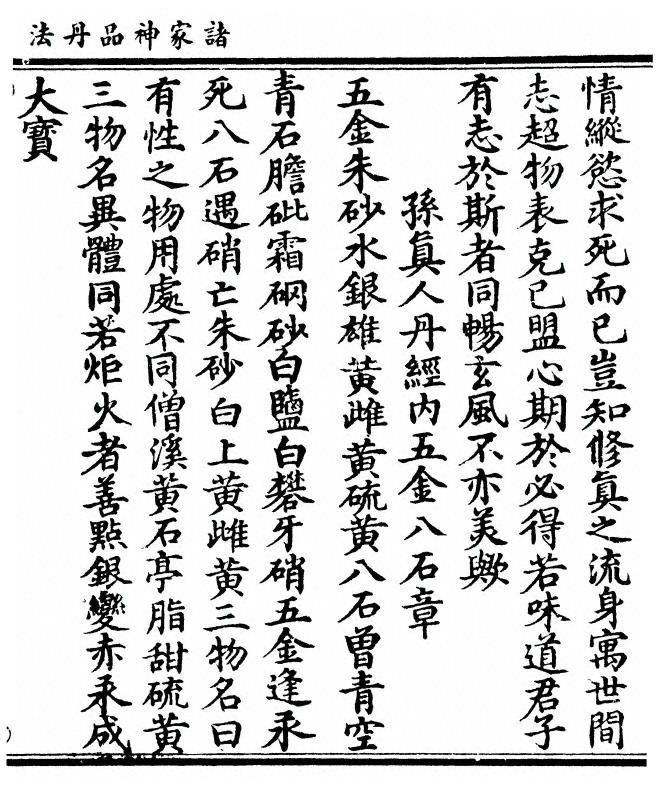 諸家神品丹法
情縱慾求死而已豈知修真之流身寓世間
志超物表克己盟心期於必得若味道君子
有志於斯者同暢玄風不亦美歟
孫真人丹經內五金八石章
五金朱砂水銀雄黃雌黃硫黃八石曾青空
青石膽砒霜硇砂白鹽白礬牙硝五金逢汞
死八石遇硝亡朱砂白上黃雌黃三物名曰
有性之物用處不同僧溪黃石亭脂甜硫黃
三物名異體同若炬火者善點銀變赤汞成
大寶